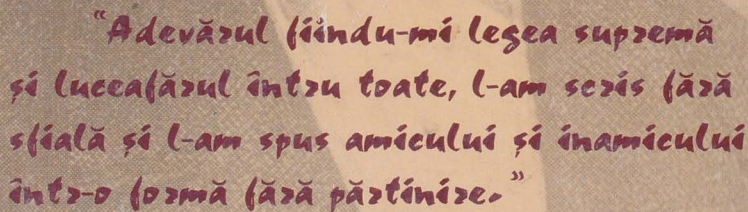 "Adevărul fiindu-mi legea supremă
și luceafărul întru toate, l-am scris fără
sfială și l-am spus amicului și inamicului
într-o formă fără părtinire."